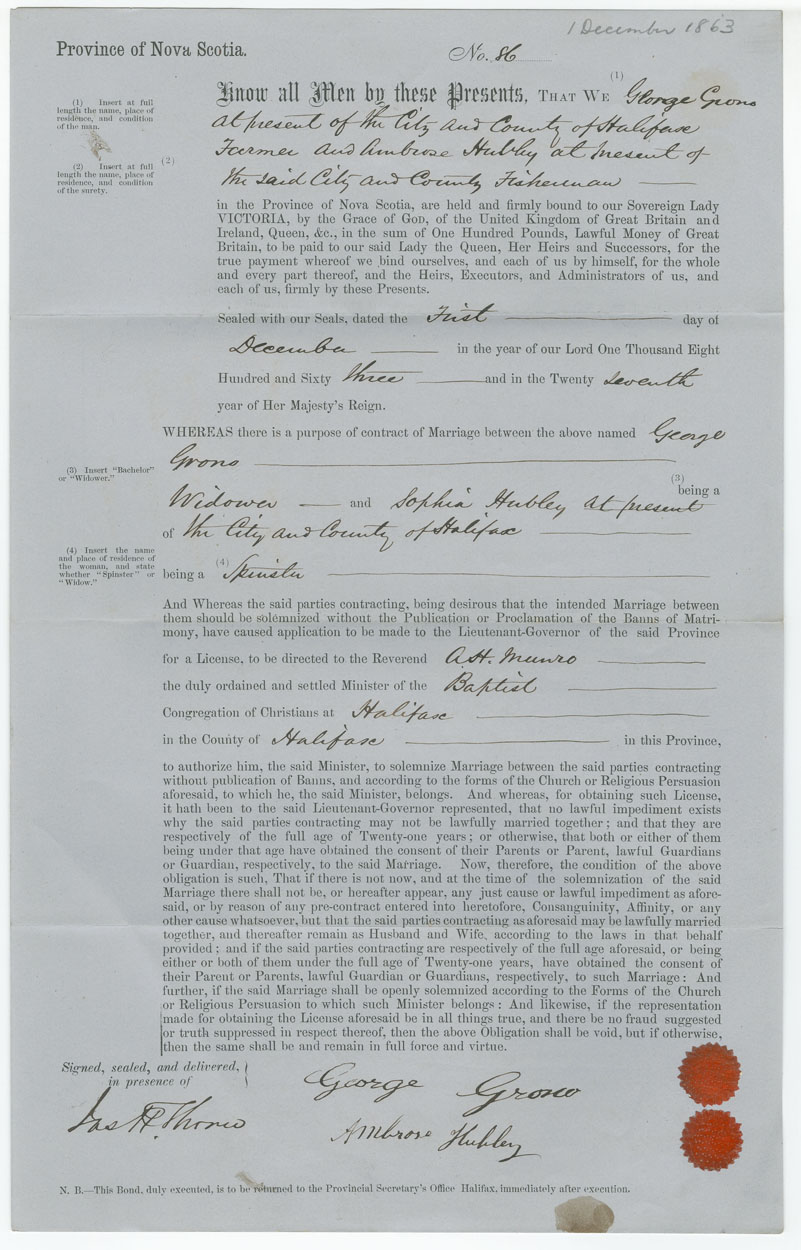 1 December 1863
Province of Nova Scotia.
No. 86
(1) Insert at full
length the name, place of
residence, and condition
of the man.
(2) Insert at full
length the name, place of
residence, and condition
of the surety.
(1)
Know all Men by these Presents, THAT WE George Grono
at present of the City and County of Halifax
(2)
Farmer and Ambrose Hubley at present of
the said City and County Fisherman
in the Province of Nova Scotia, are held and firmly bound to our Sovereign Lady
VICTORIA, by the Grace of GOD, of the United Kingdom of Great Britain and
Ireland, Queen, &c., in the sum of One Hundred Pounds, Lawful Money of Great
Britain, to be paid to our said Lady the Queen, Her Heirs and Successors, for the
true payment whereof we bind ourselves, and each of us by himself, for the whole
and every part thereof, and the Heirs, Executors, and Administrators of us, and
each of us, firmly by these Presents.
Sealed with our Seals, dated the First day of
December in the year of our Lord One Thousand Eight
Hundred and Sixty three and in the Twenty seventh
year of Her Majesty's Reign.
WHEREAS there is a purpose of contract of Marriage between the above named George
Grono
(3) Insert "Bachelor"
or "Widower."
(3)
being a
Widower and Sophia Hubley at present
of the City and County of Halifax
(4) Insert the name
and place of residence of
the woman, and state
whether "Spinster" or
"Widow."
being a (4) Spinster
And Whereas the said parties contracting, being desirous that the intended Marriage between
them should be solemnized without the Publication or Proclamation of the Banns of Matri-
mony, have caused application to be made to the Lieutenant-Governor of the said Province
for a License, to be directed to the Reverend A. H. Munro
the duly ordained and settled Minister of the Baptist
Congregation of Christians at Halifax
in the County of Halifax in this Province,
to authorize him, the said Minister, to solemnize Marriage between the said parties contracting
without publication of Banns, and according to the forms of the Church or Religious Persuasion
aforesaid, to which he, the said Minister, belongs. And whereas, for obtaining such License,
it hath been to the said Lieutenant-Governor represented, that no lawful impediment exists
why the said parties contracting may not be lawfully married together; and that they are
respectively of the full age of Twenty-one years; or otherwise, that both or either of them
being under that age have obtained the consent of their Parents or Parent, lawful Guardians
or Guardian, respectively, to the said Marriage. Now, therefore, the condition of the above
obligation is such, That if there is not now, and at the time of the solemnization of the said
Marriage there shall not be, or hereafter appear, any just cause or lawful impediment as afore-
said, or by reason of any pre-contract entered into heretofore, Consanguinity, Affinity, or any
other cause whatsoever, but that the said parties contracting as aforesaid may be lawfully married
together, and thereafter remain as Husband and Wife, according to the laws in that behalf
provided; and if the said parties contracting are respectively of the full age aforesaid, or being
either or both of them under the full age of Twenty-one years, have obtained the consent of
their Parent or Parents, lawful Guardian or Guardians, respectively, to such Marriage: And
further, if the said Marriage shall be openly solemnized according to the Forms of the Church
or Religious Persuasion to which such Minister belongs: And likewise, if the representation
made for obtaining the License aforesaid be in all things true, and there be no fraud suggested
or truth suppressed in respect thereof, then the above Obligation shall be void, but if otherwise,
then the same shall be and remain in full force and virtue.
Signed, sealed, and delivered,
in presence of
George Grono
Jas H. Thorne
Ambrose Hubley
N. B.—This Bond, duly executed, is to be returned to the Provincial Secretary's Office Halifax, immediately after execution.